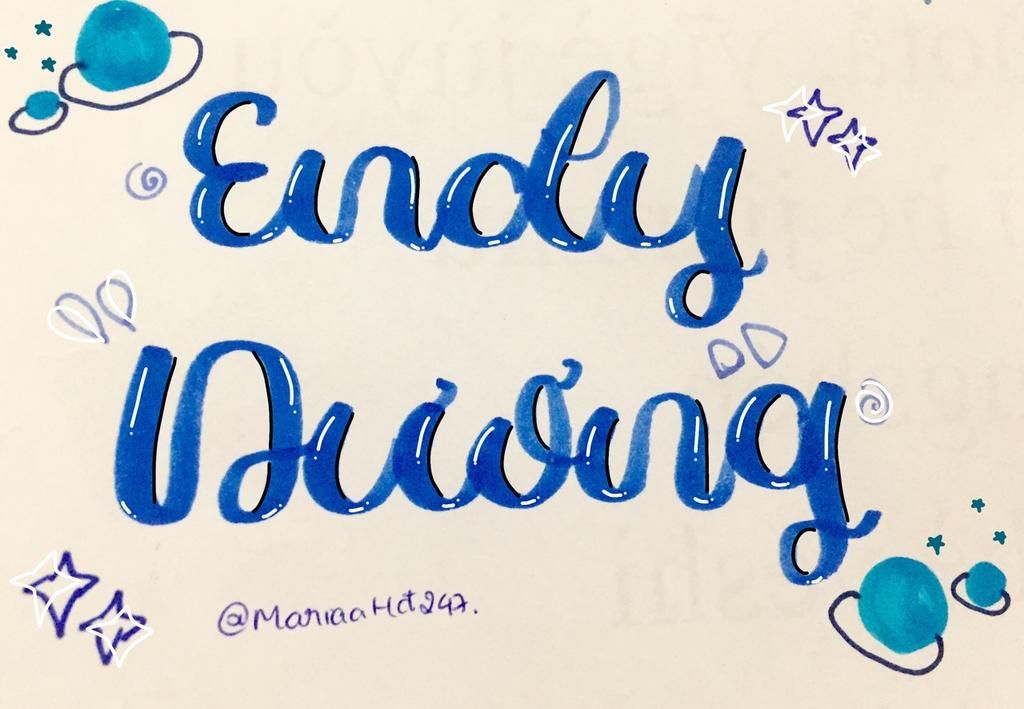 Endy
Dương
@MariaaHct247.